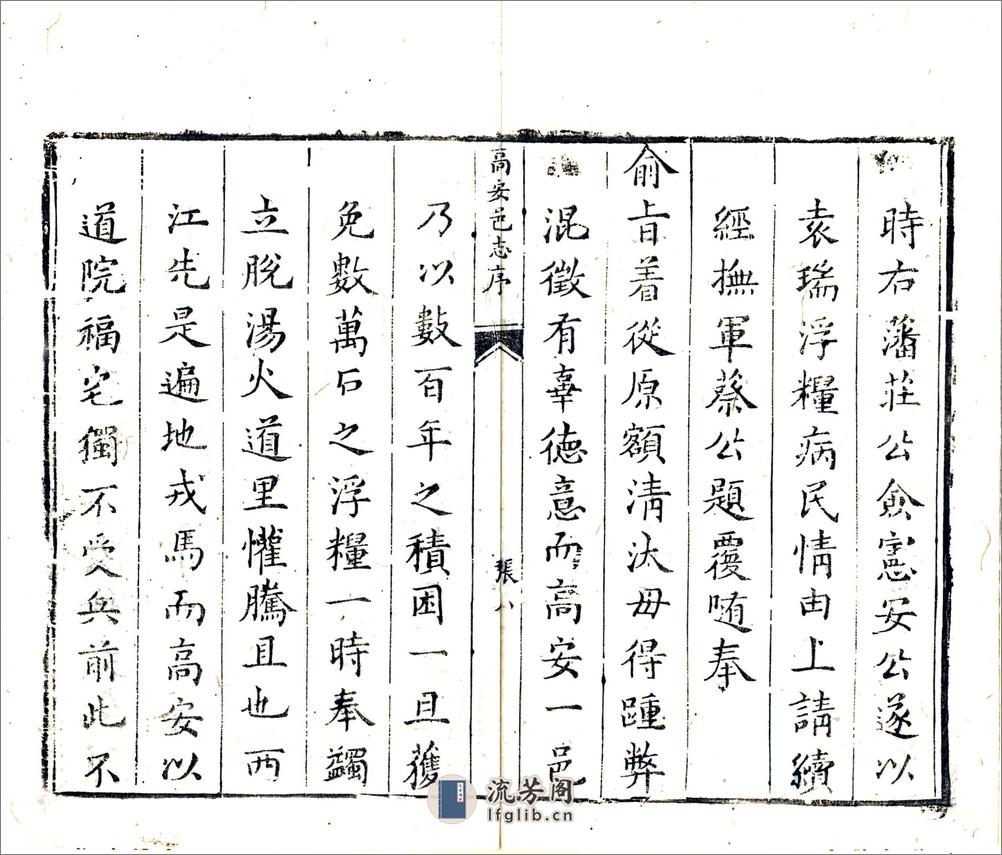 時右藩莊公僉憲安公遂以
袁瑞浮糧病民情由上請續
經撫軍蔡公題覆随奉
俞旨着從原額清汰毋得踵弊
混徵有辜德意而高安一邑
高安邑志序
張八
乃以數百年之積困一旦獲
免數萬石之浮糧一時奉蠲
立脫湯火道里懽騰且也西
江先是遍地戎馬而高安以
道院福宅獨不受兵前此不
流芳阁
lfglib.cn